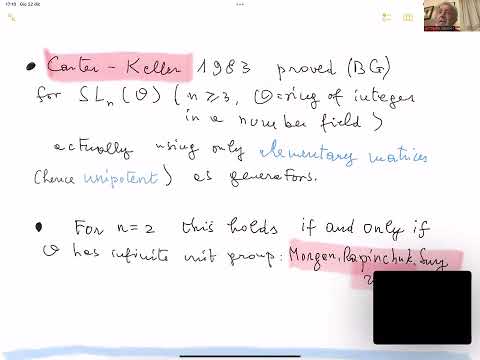 17:10 Gio 22 dic
• Carter - Keller 1983 proved (BG)
for SLn(O) (n ≥ 3, O = ring of integer
in a number field)
actually using only elementary matrices
(hence unipotent) as generators.
• For n=2 this holds if and only if
O has infinite unit group: Morgan, Rapinchuk, Sury